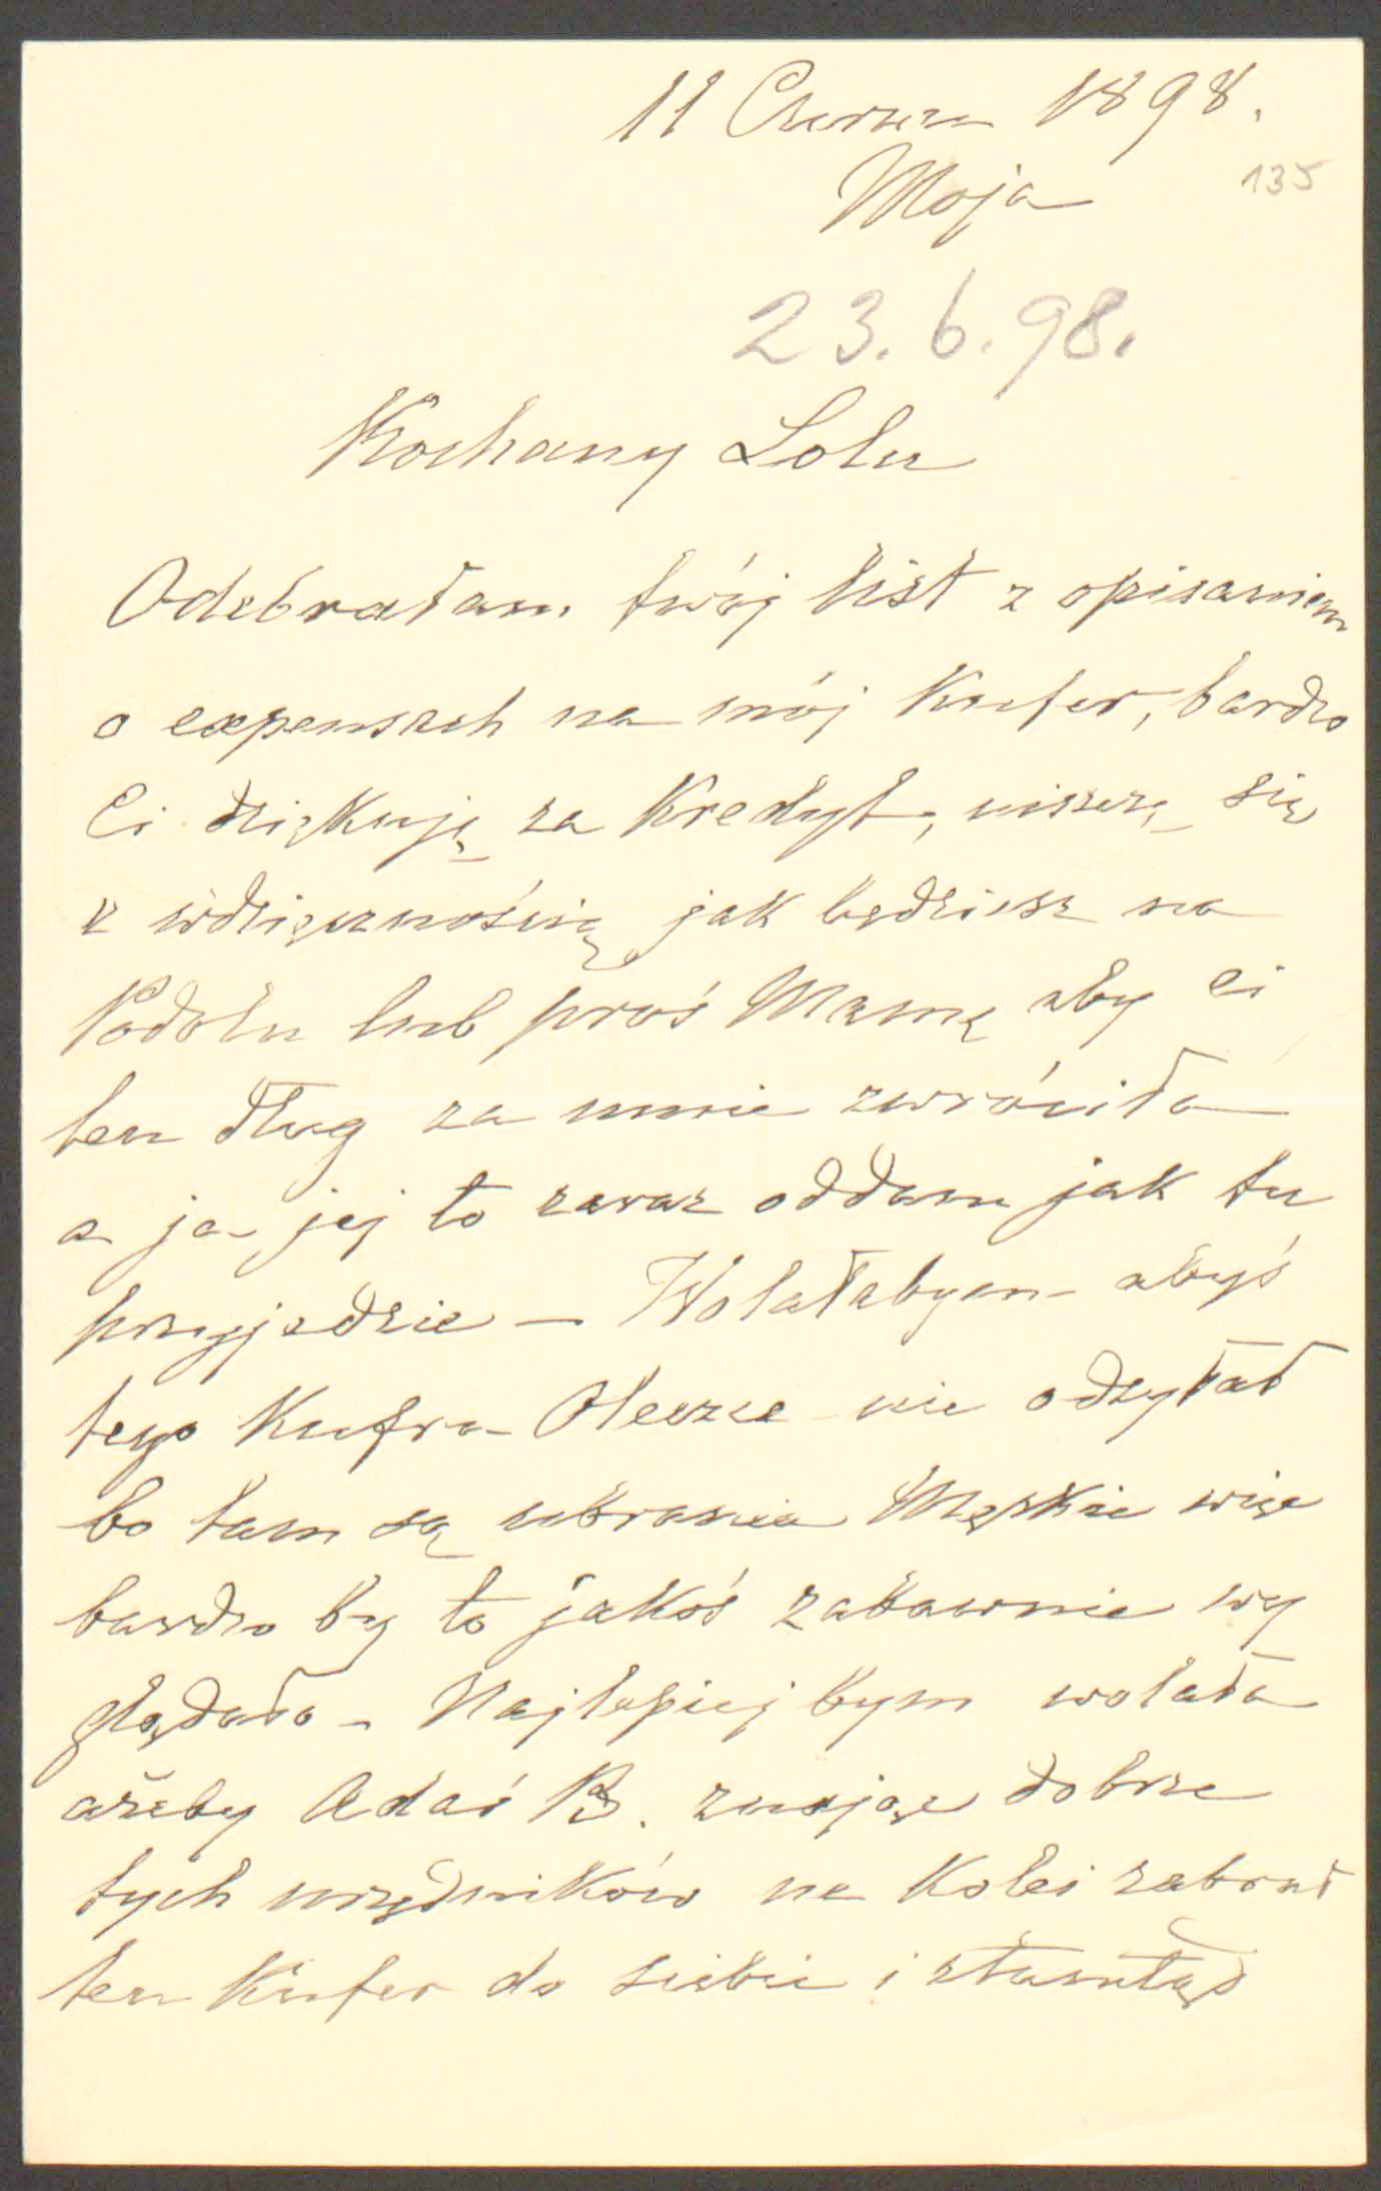 11 Czerwca 1898.
Moja
135
23.6.98.
Kochany Lolu
Odebrałam twój list z opisaniem
o expensach na mój Kufer, bardzo
Ci dziękuję za Kredyt, uiszczę się
z wdzięcznością jak będziesz na
Podolu lub proś Mamę aby Ci
ten dług za mnie zwróciła
a ja jej to zaraz oddam jak tu
przyjedzie – Wolałabym abyś
tego Kufra Olesze nie odsyłał
bo tam są ubrania Męskie więc
bardzo by to jakoś zabawnie wy
glądało – Najlepiej bym wolała
ażeby Adaś B. znając dobrze
tych urzędników na Kolei zabrał
ten Kufer do siebie i ztamtąd